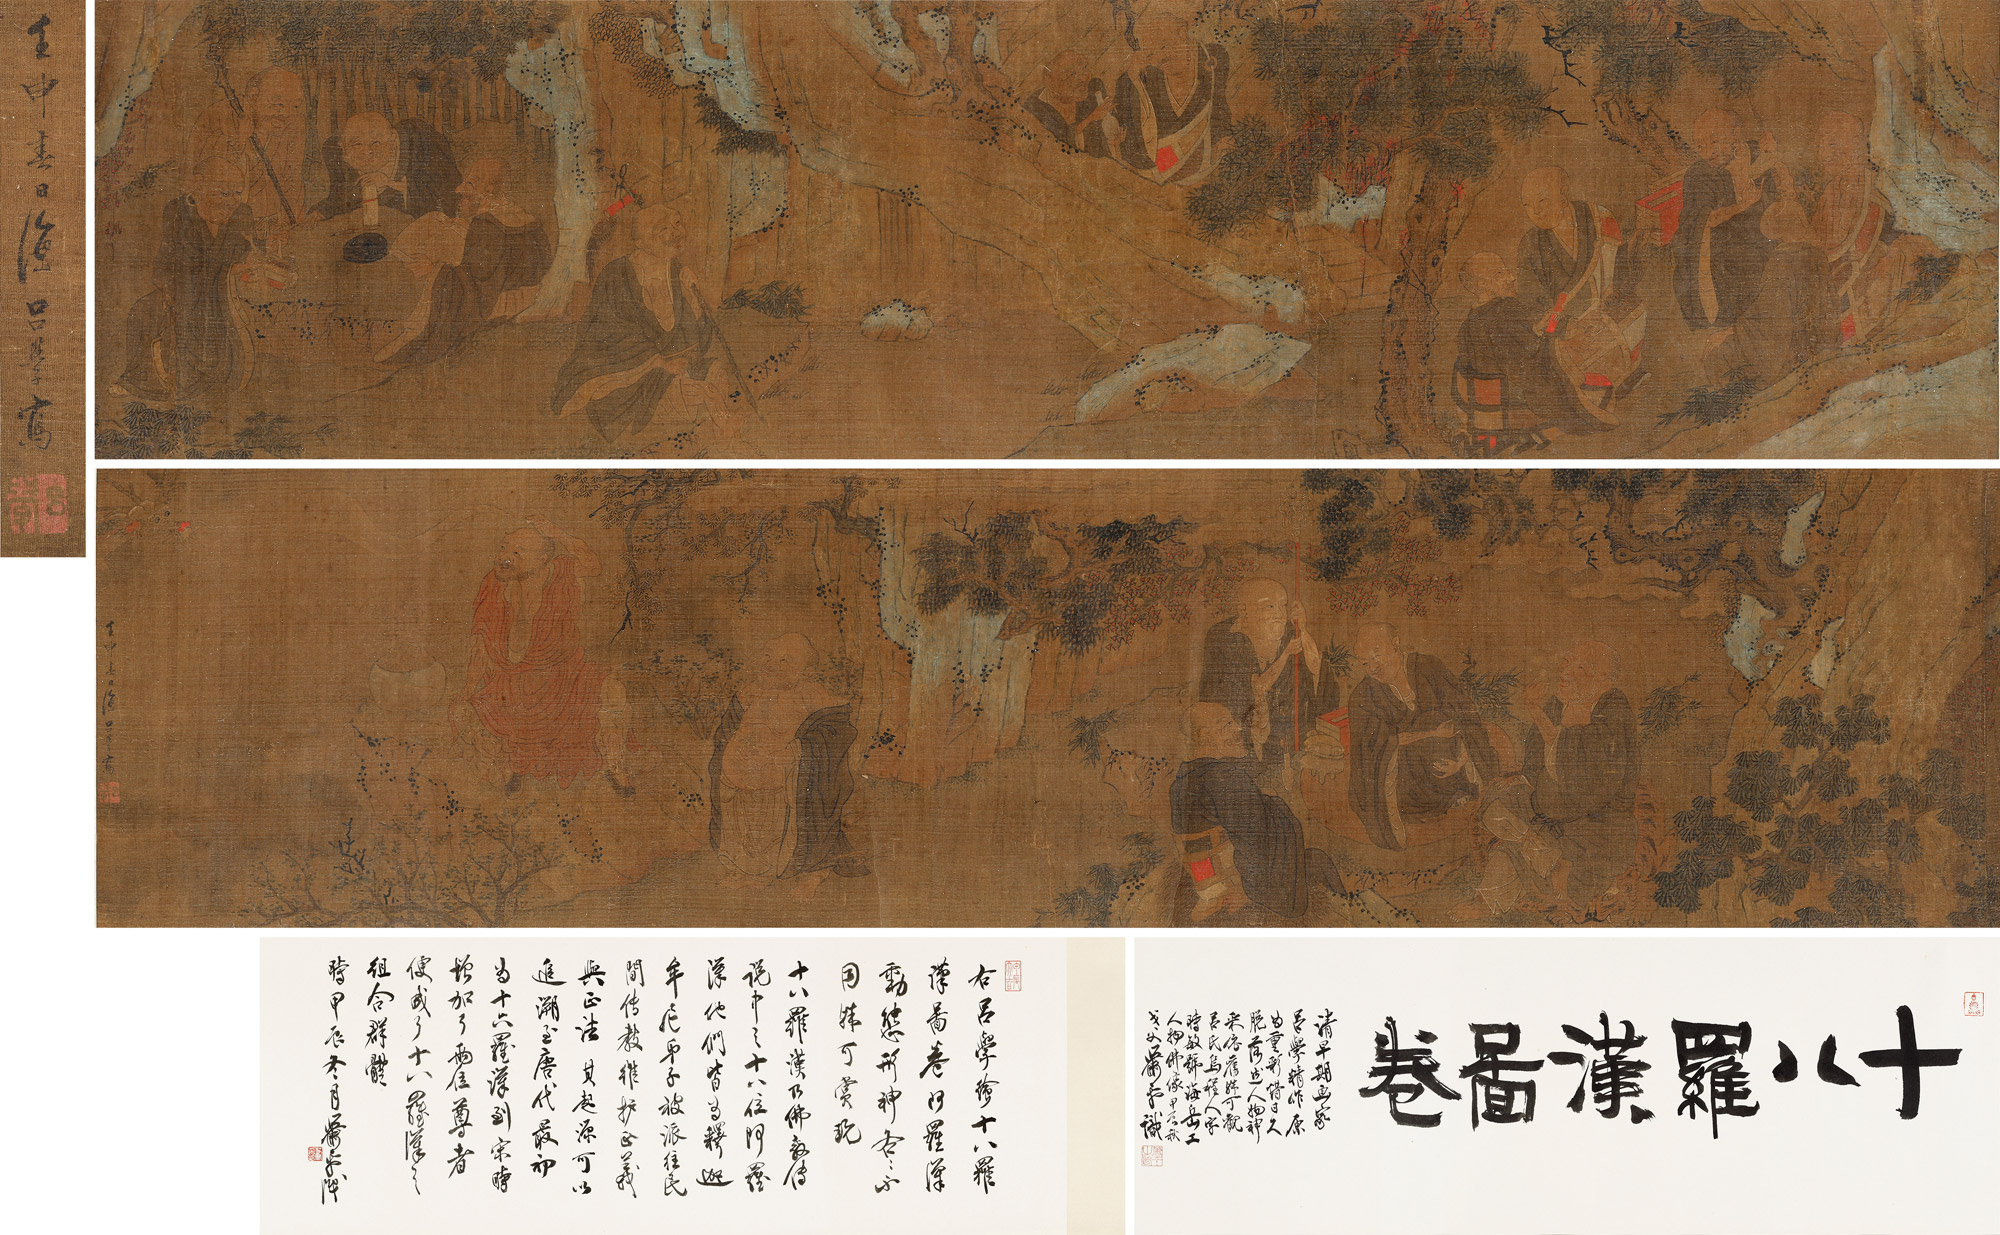 十八羅漢圖卷
清早期畫家
呂學精作原
為重彩惜日久
脫落迨人物神
采依舊殊可觀
呂氏烏程人字
時敏號海岳工
人物佛像甲辰秋
右呂學繪十八羅
漢圖卷阿羅漢
動態形神各各不
同殊可賞玩
十八羅漢乃佛教傳
說中之十八位阿羅
漢他們皆為釋迦
牟尼弟子被派往民
間傳教維護正義
與正法其起源可以
追溯至唐代最初
為十六羅漢到宋時
增加了兩位尊者
便成了十八羅漢之
組合群體
時甲辰冬月
壬申春日 呂學寫
壬申春日 呂學寫